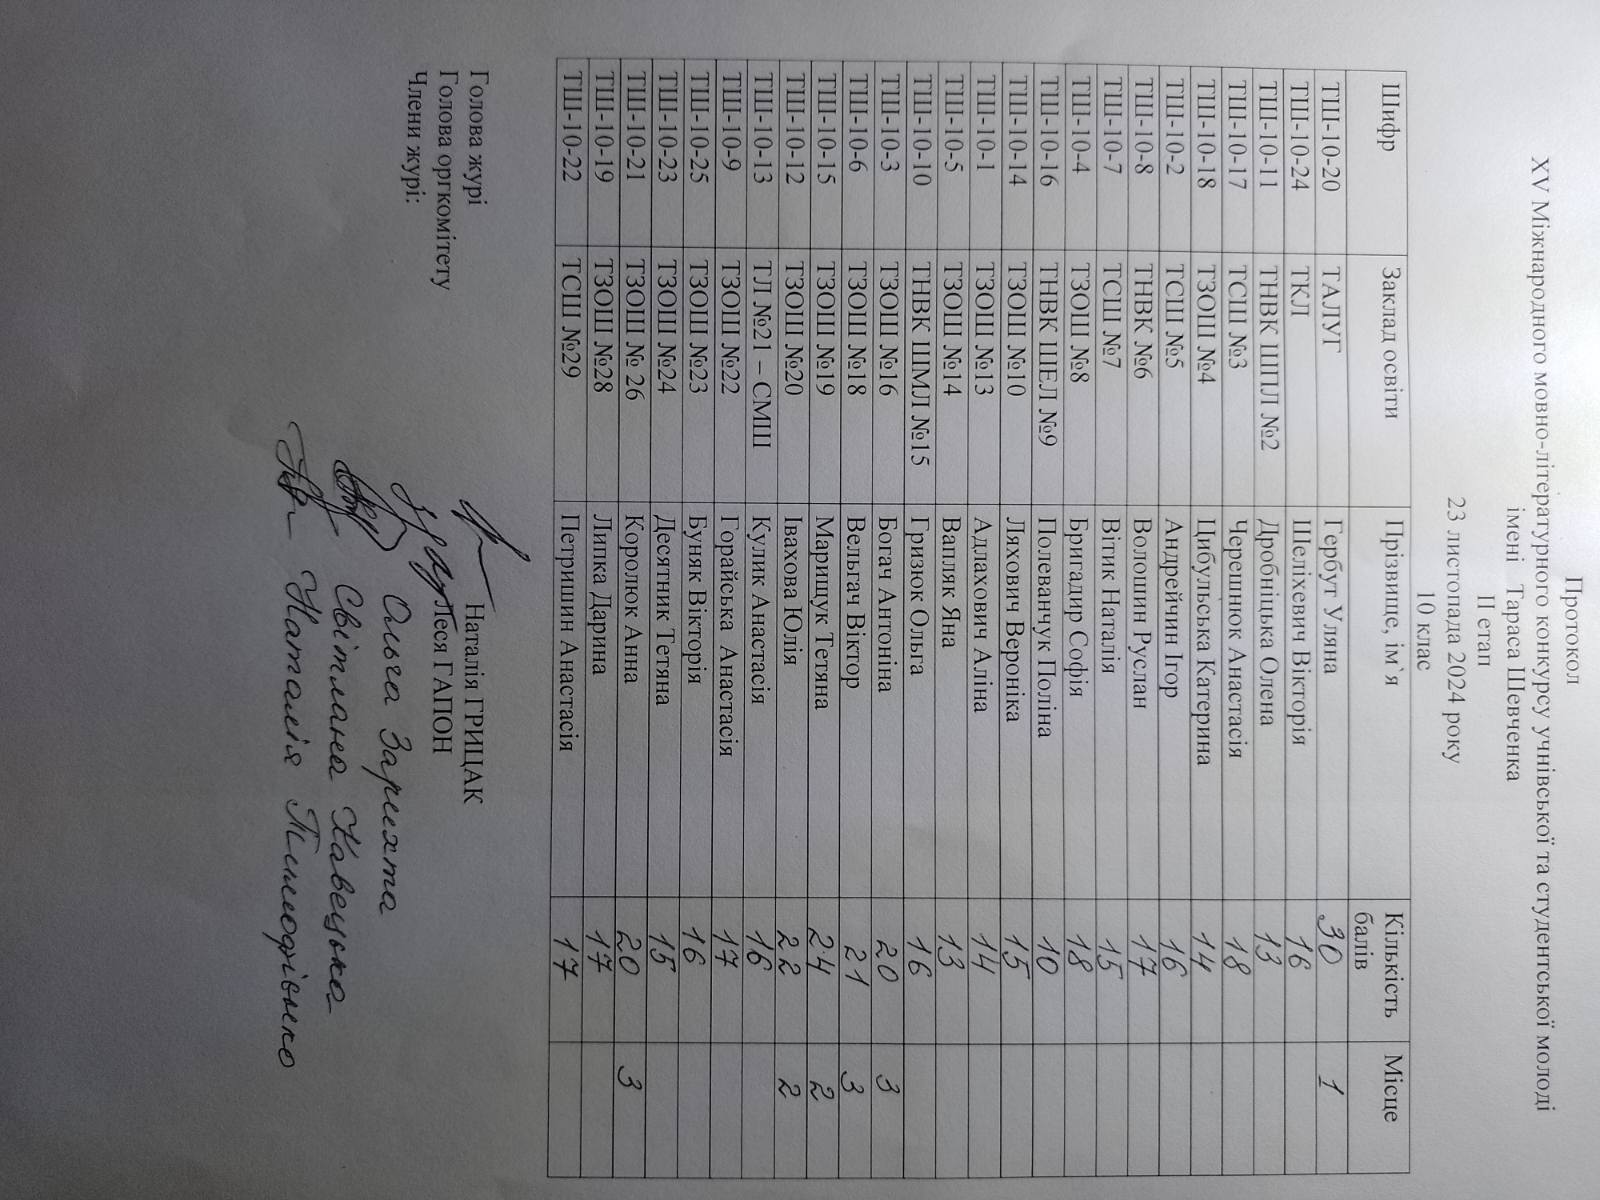 Протокол
XV Міжнародного мовно-літературного конкурсу учнівської та студентської молоді
імені Тараса Шевченка
ІІ етап
23 листопада 2024 року
10 клас
Шифр Заклад освіти Прізвище, ім`я Кількість балів Місце
ТШ-10-20 ТАЛУГ Гербут Уляна 30 1
ТШ-10-24 ТКЛ Шеліхевич Вікторія 16
ТШ-10-11 ТНВК ШПЛ №2 Дробніцька Олена 13
ТШ-10-17 ТСШ №3 Черешнюк Анастасія 18
ТШ-10-18 ТЗОШ №4 Цибульська Катерина 14
ТШ-10-2 ТСШ №5 Андрейчин Ігор 16
ТШ-10-8 ТНВК №6 Волошин Руслан 17
ТШ-10-7 ТСШ №7 Вітик Наталія 15
ТШ-10-4 ТЗОШ №8 Бригадир Софія 18
ТШ-10-16 ТНВК ШЕЛ №9 Полеванчук Поліна 10
ТШ-10-14 ТЗОШ №10 Ляхович Вероніка 15
ТШ-10-1 ТЗОШ №13 Адлахович Аліна 14
ТШ-10-5 ТЗОШ №14 Вапляк Яна 13
ТШ-10-10 ТНВК ШМЛ №15 Гризюк Ольга 16
ТШ-10-3 ТЗОШ №16 Богач Антоніна 20 3
ТШ-10-6 ТЗОШ №18 Вельгач Віктор 21 3
ТШ-10-15 ТЗОШ №19 Марищук Тетяна 24 2
ТШ-10-12 ТЗОШ №20 Івахова Юлія 22 2
ТШ-10-13 ТЛ №21 – СМШ Кулик Анастасія 16
ТШ-10-9 ТЗОШ №22 Горайська Анастасія 17
ТШ-10-25 ТЗОШ №23 Буняк Вікторія 16
ТШ-10-23 ТЗОШ №24 Десятник Тетяна 15
ТШ-10-21 ТЗОШ № 26 Королюк Анна 20 3
ТШ-10-19 ТЗОШ №28 Липка Дарина 17
ТШ-10-22 ТСШ №29 Петришин Анастасія 17
Голова журі Наталія ГРИЦАК
Голова оргкомітету Леся ГАПОН
Члени журі:
Ольга Зарихта
Світлана
Наталія